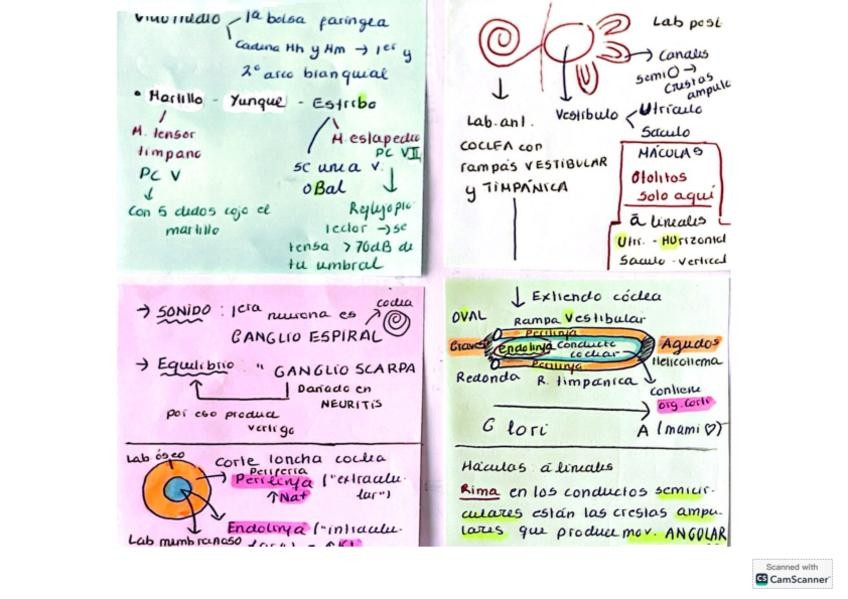 1ª bolsa faríngea
Cadena Hh y Hm → 1er y
2º arco branquial
• Martillo - Yunque - Estribo
M. tensor
timpano
PC V
↓
Con 5 dedos cojo el
martillo
M. estapedio
PC VII
se une a v.
OBal
Reflejo pro
tector → se
tensa > 70dB de
tu umbral
Lab post
→ Canales
semiO →
Crestas
ampul
Vestíbulo
Utrículo
Sáculo
Lab. ant.
COCLEA con
rampas VESTIBULAR
y TIMPÁNICA
MÁCULAS
Otolitos
Solo aquí
ā lineales
Utr. - HUrizontal
Saculo - vertical
→ SONIDO : 1era neurona es
coclea
GANGLIO ESPIRAL
→ Equilibrio " GANGLIO SCARPA
Dañado en
NEURITIS
por eso produce
vertigo
Lab óseo
Corte loncha coclea
Periferia
Perilinfa ("extracelu-
lar")
↑Na+
Endolinfa ("intracelu-
Lab membranoso
↓ Extiendo cóclea
OVAL
Rampa Vestibular
Perilinfa
Graves
endolinfa Conducto
coclear
Agudos
Helicotrema
Perilinfa
Redonda R. timpánica
contiene
org. Corti
G lori A (mami ♡)
Máculas: ā lineales
Rima en los conductos semicir-
culares están las crestas ampu-
lares que produce mov. ANGULAR
Scanned with
CS CamScanner